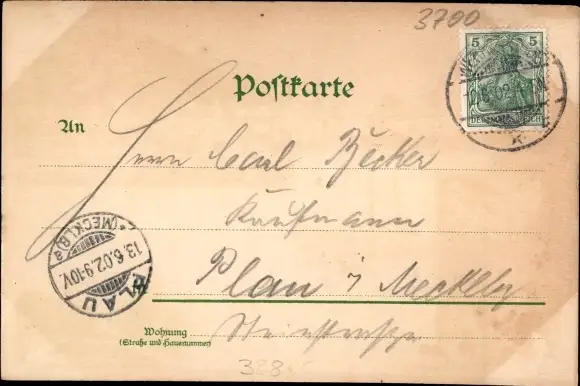 3700
5 5
DEUTSCHES REICH
Postkarte
An
Herrn Carl Becker
Kaufmann
Plan i/ Mecklbg
Steinstrasse
Wohnung
(Straße und Hausnummer)
PLAU
13.6.02.9-10V.
*(MECKLB)a
328